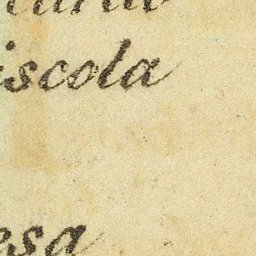 iscola
esa